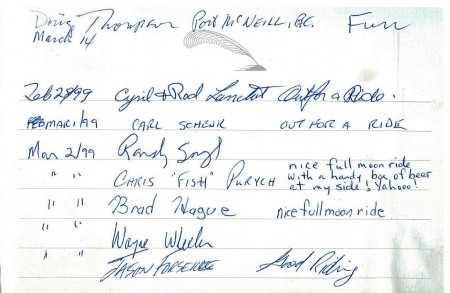 Doug Thompson Port McNeill, B.C. Fun
March 14
Feb 28/99 Cyril & Rod Lanctot Out for a Ride.
MAR 1/99 CARL SCHENK OUT FOR A RIDE
Mar 2/99 Randy
" " CHRIS "FISH" PURYCH nice full moon ride with a handy box of beer at my side! Yahooo!
" " Brad Hague nice full moon ride
" " Wayne Wheeler
" " JASON Good Riding